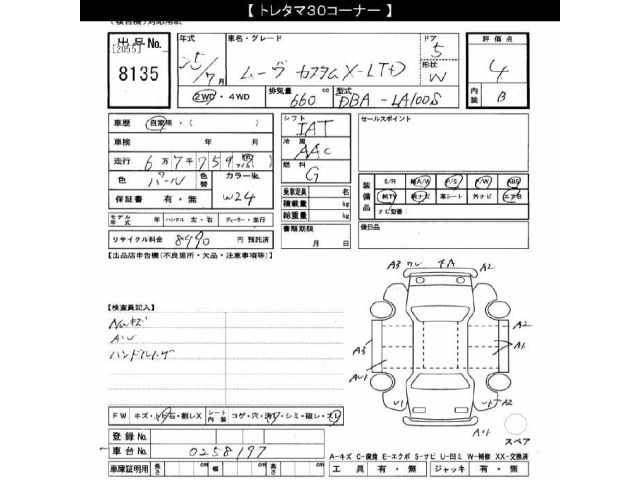 【 トレタマ30コーナー 】
出品No. 年式 車名・グレード ドア 評価点
[2055] 25 ムーヴ カスタムX-LTD 5 4
8135 7月 形状 W
2WD・4WD 排気量 660 cc 型式 DBA-LA100S 内装 B
車歴 自家用・( ) シフト IAT セールスポイント
車検 年 月 冷房 AAC
走行 6万7千759 燃料 G
色 パール 色替 カラーNo. W24
保証書 有・無
乗車定員 名
積載量 kg
総重量 kg
装備品 S/R 純A/W P/S P/W ABS
純TV 純ナビ 革シート 外ナビ エアB
ナビ型番:
モデル年式 年 ハンドル 左・右 ディーラー・並行
書類期限 月 日
後日品
リサイクル料金 8990 円 預託済
【出品店申告欄(不良箇所・欠品・注意事項等)】
A3 A2
【検査員記入】
A2
A3 A1
ハンドル
AU1
U1 A2
AU1
FW キズ・石・割レX シート内装 コゲ・穴・シミ・
スペア
登録No.
車台No. 0258197
A-キズ C-腐食 E-エクボ S-サビ U-凹ミ W-補修 XX-交換済
車庫証明用 長さ cm 幅 cm 高さ cm 工具 有・無 ジャッキ 有・無